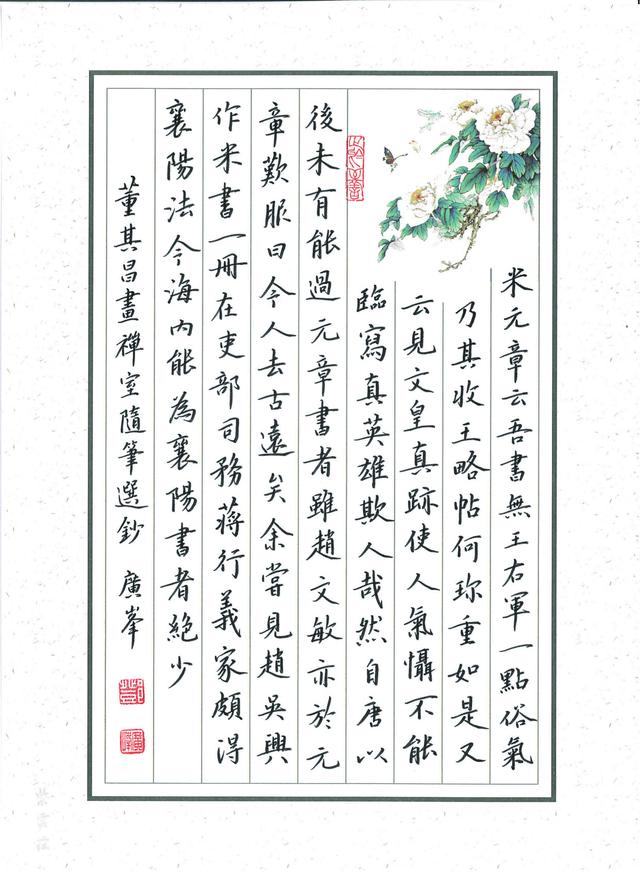 米元章云吾書無王右軍一點俗氣
乃其收王略帖何珎重如是又
云見文皇真跡使人氣懾不能
臨寫真英雄欺人哉然自唐以
後未有能過元章書者雖趙文敏亦於元
章歎服曰今人去古遠矣余嘗見趙吳興
作米書一冊在吏部司務蔣行義家頗得
襄陽法今海內能為襄陽書者絕少
董其昌畫禪室隨筆選鈔 廣峯